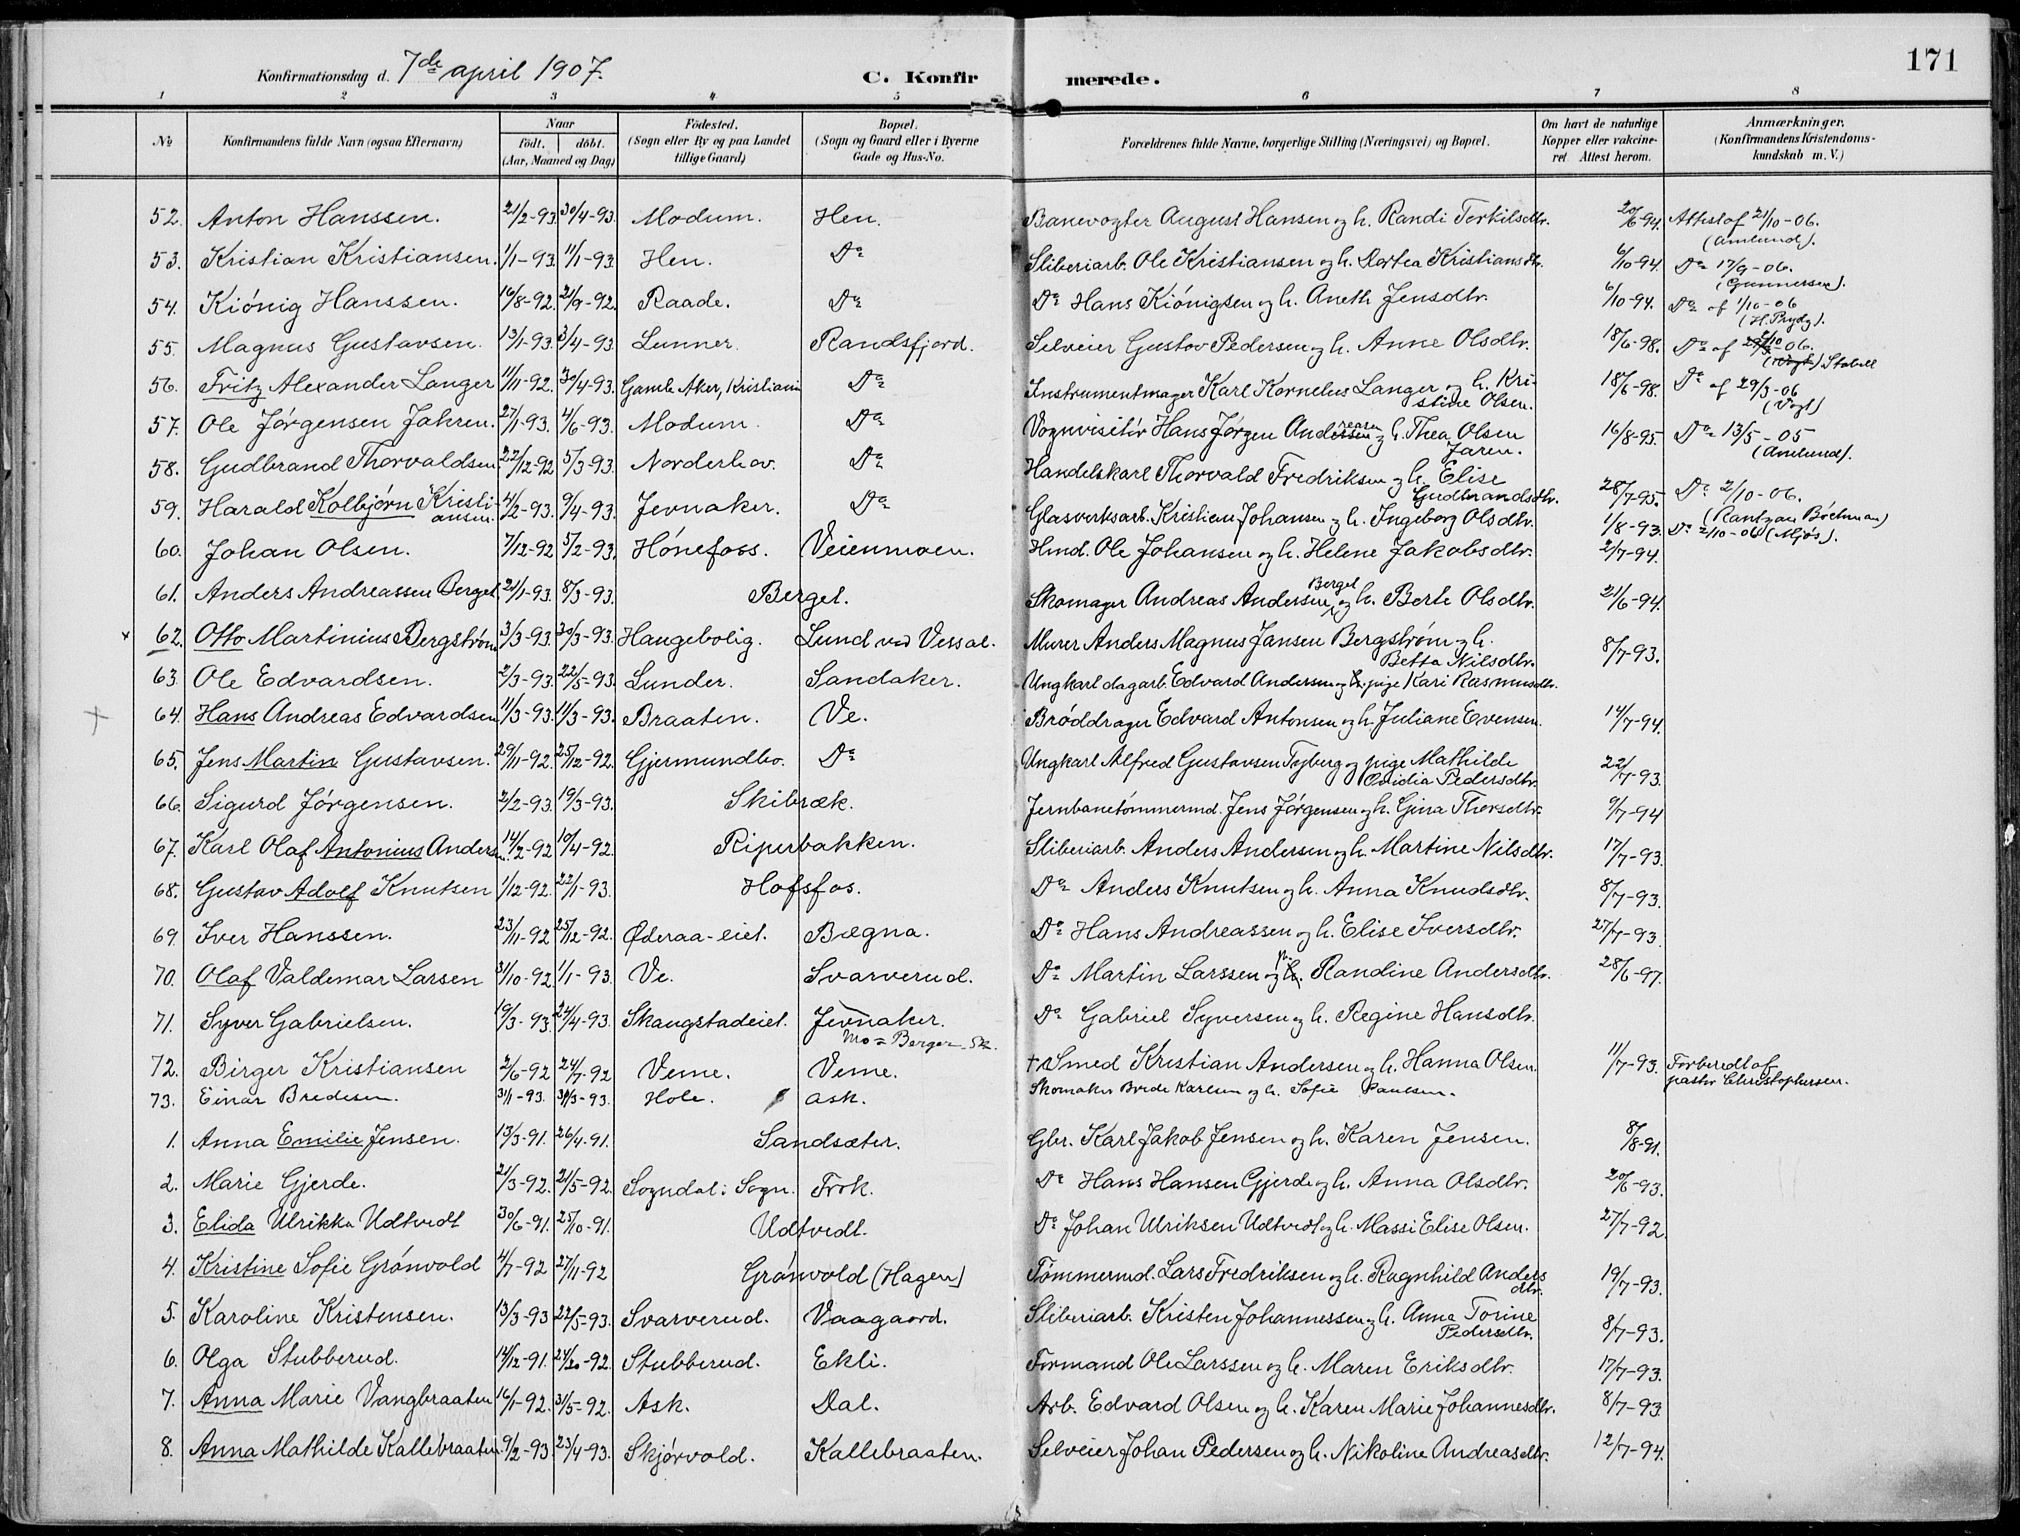 171
Konfirmationsdag d. 7de april 1907. C. Konfirmerede.
1 2 3 4 5 6 7 8
No Konfirmandens fulde Navn (ogsaa Efternavn) Naar født. døbt. (Aar, Maaned og Dag) Fødested. (Sogn eller By og paa Landet tillige Gaard) Bopæl. (Sogn og Gaard eller i Byerne Gade og Hus-No. Forældrenes fulde Navne, borgerlige Stilling (Næringsvei) og Bopæl. Om havt de naturlige Kopper eller vakcineret. Attest herom. Anmærkninger. (Konfirmandens Kristendomskundskab m. V.)
52. Anton Hanssen. 21/2-93. 30/4-93. Modum. Hen. Banevogter August Hansen og h. Randi Terkilsdtr. 20/6-94. Attest af 21/10-06. (Amlund).
53. Kristian Kristiansen. 1/1-93. 11/1-93. Hen. Do Sliberiarb. Ole Kristiansen og h. Dortea Kristiansdtr. 6/10-94. Do 17/9-06. (Gunnersen).
54. Kiónig Hanssen. 16/8-92. 21/9-92. Raade. Do Do Hans Kiónigsen og h. Aneth Jensdtr. 6/10-94. Do af 1/10-06 (H. Prydz).
55. Magnus Gustavsen. 13/1-93. 3/4-93. Lunner. Randsfjord. Selveier Gustav Pedersen og h. Anne Olsdtr. 18/6-98. Do af -06. (Vogt) Stabell
56. Fritz Alexander Langer 11/11-92. 30/4-93. Gamle Aker, Kristiania Do Instrumentmager Karl Kornelius Langer og h. Kristine Olsen. 18/6-98. Do af 29/3-06 (Vogt)
57. Ole Jørgensen Jahren. 27/1-93. 4/6-93. Modum. Do Vognvisitør Hans Jørgen Andreasen og h. Thea Olsen Jaren. 16/8-95. Do 13/5-05 (Amlund).
58. Gudbrand Thorvaldsen 22/12-92 5/3-93. Norderhov. Do Handelskarl Thorvald Fredriksen og h. Elise Gudbrandsdtr. 28/7-95. Do 2/10-06. (Rantzau Bóchman)
59. Harald Kolbjørn Kristiansen. 4/2-93. 9/4-93. Jevnaker. Do Glasverksarb. Kristian Johansen og h. Ingeborg Olsdtr. 1/8-93. Do 2/10-06 (Mjøs).
60. Johan Olsen. 7/12-92 5/2-93. Hónefoss. Veienmoen. Hmd. Ole Johansen og h. Helene Jakobsdtr. 2/7-94.
61. Anders Andreassen Berget. 21/1-93. 8/3-93. Berget. Skomager Andreas Andersen Berget og h. Berte Olsdtr. 21/6-94.
62. Otto Martinius Bergstrøm 3/3-93. 30/3-93. Haugebolig. Lund ved Vessal. Murer Anders Magnus Jansen Bergstrøm og h. Betta Nilsdtr. 8/7-93.
63. Ole Edvardsen. 2/3-93. 22/5-93. Lunder. Sandaker. Ungkarl dagarb. Edvard Andersen og pige Kari Rasmusdtr.
64. Hans Andreas Edvardsen 11/3-93. 11/3-93. Braaten. Ve. Brøddrager Edvard Antonsen og h. Juliane Evensen. 14/7-94.
65. Jens Martin Gustavsen. 29/11-92. 25/12-92. Gjermundbo. Do Ungkarl Alfred Gustavsen Tyberg og pige Mathilde Ovidia Pedersdtr. 22/7-93.
66. Sigurd Jørgensen. 2/2-93. 19/3-93. Skibræk. Jernbanetømmermd. Jens Jørgensen og h. Gina Thorsdtr. 9/7-94
67. Karl Olaf Antonius Andersn. 14/2-92 10/4-92. Riperbakken. Sliberiarb. Anders Andersen og h. Martine Nilsdtr. 17/7-93.
68. Gustav Adolf Knutsen 1/12-92. 22/1-93. Hofsfos. Do Anders Knutsen og h. Anna Knudsdtr. 8/7-93.
69. Iver Hanssen. 23/11-92 25/12-92. Øderaa-eiet. Bægna. Do Hans Andreassen og h. Elise Iversdtr. 27/7-93.
70. Olaf Valdemar Larsen 31/10-92. 1/1-93. Ve. Svarverud. Do Martin Larssen og Randine Andersdtr. 28/6-97.
71. Syver Gabrielsen. 19/3-93. 24/4-93. Skaugstadeiet. Jevnaker. Do Gabriel Syversen og h. Regine Hansdtr.
Mo = Berger
72. Birger Kristiansen 2/6-92 24/7-92 Veme. Veme. † Smed Kristian Andersen og h. Hanna Olsen. 11/7-93. Forberedt af pastor Christophersen.
73. Einar Bredesen. 31/1-93. 31/3-93. Hole. Ask. Skomaker Brede Karlsen og h. Sofie Paulsen.
1. Anna Emilie Jensen. 13/3-91. 26/4-91. Sandsæter. Gbr. Karl Jakob Jensen og h. Karen Jensen. 8/8-91.
2. Marie Gjerde. 21/3-92. 21/5-92. Sogndal i Sogn. Trok. Do Hans Hansen Gjerde og h. Anna Olsdtr. 20/6-93.
3. Elida Ulrikka Udtvedt 30/6-91. 25/10-91. Udtvedt. Do Johan Ulriksen Udtvedt og h. Massi Elise Olsen. 27/7-92
4. Kristine Sofie Grónvold 4/7-92 27/11-92 Grónvold (Hagen) Tømmermd. Lars Fredriksen og h. Ragnhild Andersdtr. 19/7-93.
5. Karoline Kristensen. 13/3-93 22/5-93. Svarverud. Vaagaard. Sliberiarb. Kristen Johannessen og h. Anne Torine Pedersdtr. 8/7-93.
6. Olga Stubberud. 14/12-91. -92. Stubberud. Ekli. Formand Ole Larssen og h. Maren Eriksdtr. 17/7-93.
7. Anna Marie Vangbraaten 16/1-92. 31/5-92. Ask. Dal. Arb. Edvard Olsen og h. Karen Marie Johannesdtr. 8/7-93
8. Anna Mathilde Kallebraaten 9/2-93. 23/4-93. Skjørvold. Kallebraaten. Selveier Johan Pedersen og h. Nikoline Andreasdtr. 12/7-94.